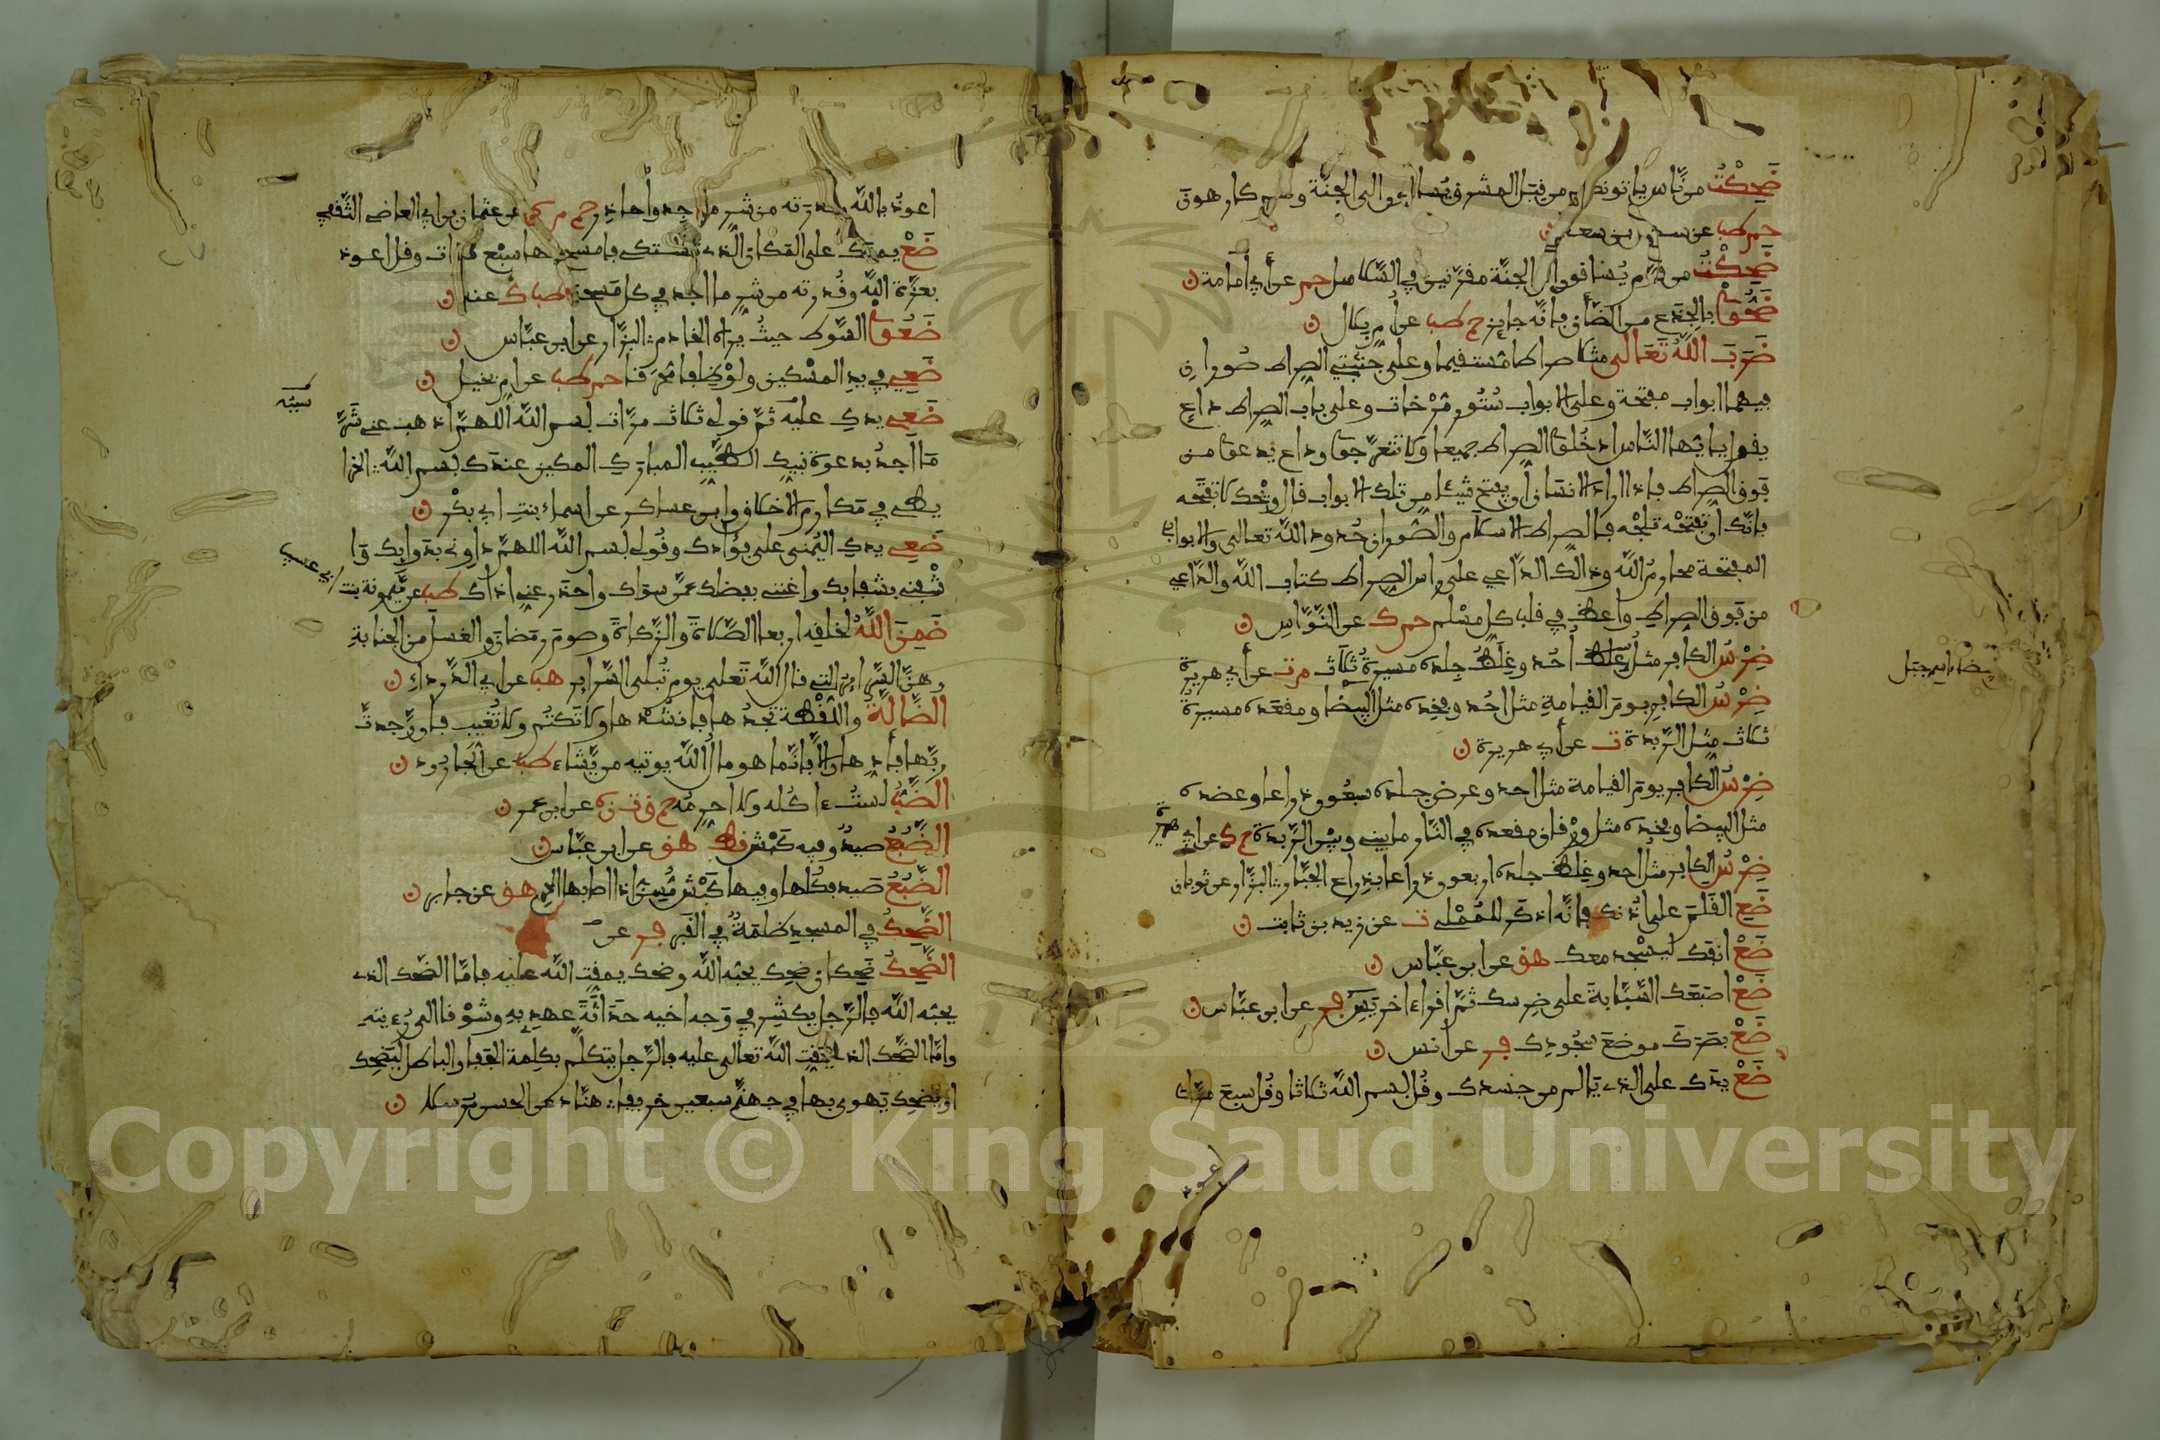 ضَحِكْتُ من نَّاس ياتونكم من قبَل المشرق يُساقون الى الجنَّة وهم كارهون
حم طب عن سهل بن سعد ن
ضَحِكْتُ من قوم يُساقون الى الجنَّة مقرَّنين في السَّلاسل حم عن أبي أمامة ن
ضَحُّوا بالجذع من الضَّأن فإنَّه جايز حم طب عن أم بلال ن
ضَرَبَ اللَّهُ تَعَالى مثلا صراطا مُستقيما وعلى جنْبتي الصراط سُوران
فيهما ابواب مفتحة وعلى الابواب سُتُور مُرْخات وعلى باب الصراط داعٍ
يقول يا ايُّها النَّاس ادخُلوا الصراط جميعا ولا تتعرَّجوا وداع يدعو من
فوق الصراط فإذا اراد الانسان أن يفتح شيئا من تلك الابواب قال ويْحك لا تفتَحه
فإنَّك ان تفتحْه تلِجْه فالصراط الاسلام والسُّوران حُدود الله تعالى والابواب
المفتحة محارمُ الله وذالك الداعي على راس الصراط كتاب الله والداعي
من فوق الصراط واعظ في قلب كل مسْلم حم ك عن النَّوَّاس ن
ضِرْسُ الكافر مثلُ أُحُد وغِلَظُ جِلده مسيرةُ ثَلاث م ت عن أبي هريرة
ضِرْسُ الكافر يومَ القيامةِ مثل احُد وفخِذه مثل البيضا ومقعَده مسيرةُ
ثلاث مثل الرَّبذة ت عن أبي هريرة ن
ضِرْسُ الكافر يومَ القيامة مثل احد وعرض جلده سبعُون ذراعا وعضده
مثل البيضا وفخِذه مثل ورْقان مقعده في النَّار ما بيني وبيْن الرَّبذة حم ك عن أبي هريرة
ضِرْسُ الكافر مثلُ احد وغِلَظُ جلده اربعون ذراعا بذِراع الجبَّار البزار عن ثوبان
ضَعِ القَلمَ على أُذنك فإنَّه اذكَر للمُمْلي ت عن زيد بن ثابت ن
ضَعْ انفَك ليسْجد معك هق عن ابن عبَّاس ن
ضَعْ اصبَعَك السَّبَّابةَ على ضِرسك ثمَّ اقراء اخر يَس فر عن ابن عبَّاس ن
ضَعْ بصَرَك موضعَ سجُودِك فر عن أنس ن
ضَعْ يدَك على الذي تألم من جسدك وقُل بسم اللَّه ثلاثا وقُل سبعَ مرَّات
بيضاء اسم جبل
اعوذُ بالله وقدرَته من شر ما اجِد وأُحاذر حم م عن عثمان بن ابي العاص الثَّقفي
ضَعْ يمينَك على المَكان الذي تشتكي فامسَح بها سبْع مرَّات وقل اعوذ
بعزَّة اللَّه وقُدرته من شر ما اجد في كل مَسحة طب ك عنه ن
ضَعُوا السَّوط حيثُ يراه الخادم البزَّار عن ابن عبَّاس ن
ضَعِي في يد المسْكين ولوْ ظِلفا مُحْرَقا حم طب عن ام بُجيد ن
ضَعِي يدكِ عليه ثمَّ قولي ثلاث مرَّات بسم اللَّه اللهمَّ اذهب عني شرَّ
مَا أجدُ بدعوة نبيك الطيِّب المبارَك المكين عندَك بسم اللَّه الخرا
يطي في مَكارم الاخلاق وابن عساكر عن اسماء بنت ابي بكْر ن
ضَعِي يدكِ اليُمنى على فؤادِك وقُولي بسم اللَّه اللهمَّ داوني بدوايك وَا
شْفني بشفايك واغنني بفضلك عمَّن سوَاك واحدر عني اذاك طب عن مَّيمونة بنت أبي عسيب
ضَمِنَ اللَّهُ لخلقِه اربعا الصَّلاةَ والزَّكاةَ وصومَ رمَضان والغُسل من الجنابة
وهنَّ السَّراير التي قال اللَّه تَعلى يوم تُبلى السَّراير هب عن ابي الدَّرداءِ ن
الضَّالَّةُ واللُّقْطة تَجدُها فانشُدها ولا تَكتُم ولا تُغيِّب فان وَّجدتَّ
ربَّها فادِّها والا فإنَّما هو مالُ اللَّه يوتيه من يَّشاء طب عن الجَارود ن
الضَّبُّ لستُ ءاكُله ولا احرمُه حم ق ت ن ه عن ابن عمر ن
الضَّبُعُ صيْدٌ وفيه كَبْش قط هق عن ابن عبَّاس ن
الضَّبُعُ صَيد فكُلها وفيها كَبْش مُّسِنٌّ اذا اصابها المحرم هق عن جابر ن
الضَّحِكُ في المسجد ظلمةٌ في القَبر فر عن
الضَّحِكُ ضَحِكان ضحِك يحبُّه اللَّه وضحك يمقت اللَّه عليه فامَّا الضَّحك الذي
يحبُّه اللَّه فالرَّجل يكشِر في وَجه اخيه حَدَاثَةَ عهدٍ بهِ وشوْقا الى رُءيته
وامَّا الضَّحك الذي يمقُت اللَّه تعالى عليه فالرَّجل يتكلَّم بكلِمة الجَفا والباطل ليَضحِك
او يُضحِك يَهوي بها في جهنَّم سبعين خريفا هنَّاد عن الحسن مُرسلا ن
Copyright © King Saud University
1957